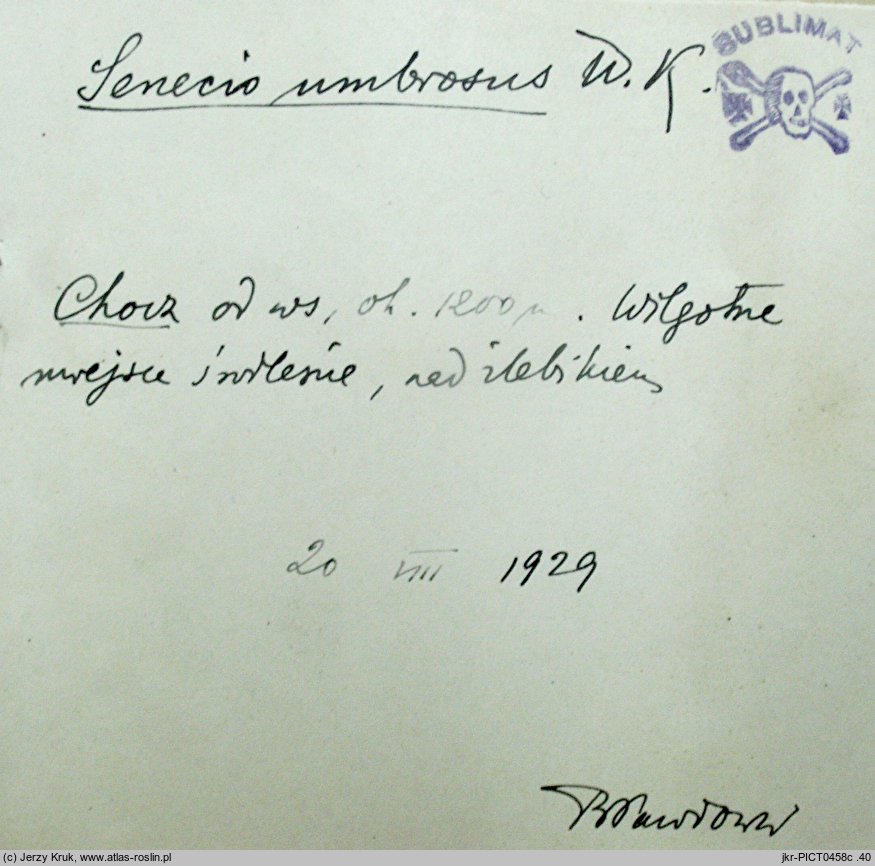 Senecio umbrosus W. K.
SUBLIMAT
Chocz od ws, ok. 1200 m. Wilgotne
miejsce śródleśne, nad żlebikiem
20 VIII 1929
B Pawłowski
(c) Jerzy Kruk, www.atlas-roslin.pl
jkr-PICT0458c .40